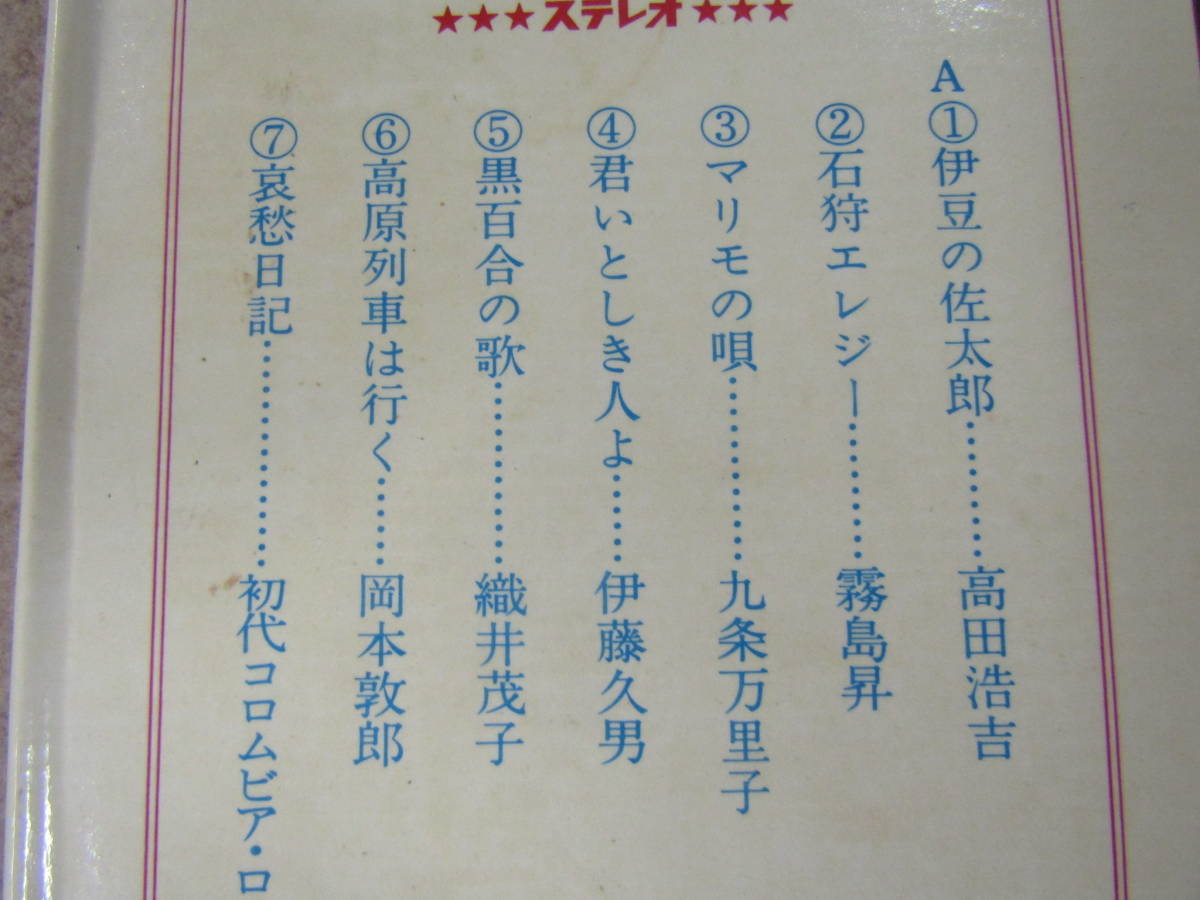 ★★★ステレオ★★★
A①伊豆の佐太郎…………高田浩吉
②石狩エレジー…………霧島昇
③マリモの唄……………九条万里子
④君いとしき人よ………伊藤久男
⑤黒百合の歌……………織井茂子
⑥高原列車は行く………岡本敦郎
⑦哀愁日記………………初代コロムビア・ロ